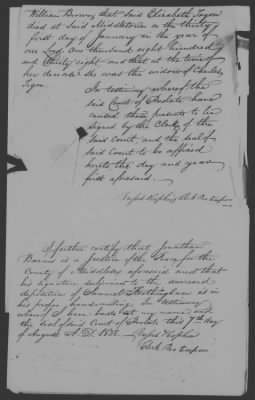 William Brown, that said Elizabeth Tryon
died at said Middletown on the thirty
first day of January in the year of
our Lord One thousand eight hundred
and thirty eight and that at the time of
her decease She was the widow of Charles
Tryon.
In testimony whereof the
said Court of Probate have
caused these presents to be
signed by the Clerk of the
said Court, and the Seal of
said Court to be affixed
hereto the day and year
first aforesaid.
Hopkins Clerk Pro tempore
I further certify that Jonathan
Barnes is a Justice of the Peace for the
County of Middlesex aforesaid and that
his signature subjoined to the annexed
deposition of Samuel is in
his proper handwriting. In testimony
whereof I have hereto set my name and
the Seal of said Court of Probate this 7th day
of August A.D. 1838. Hopkins
Clerk Pro tempore